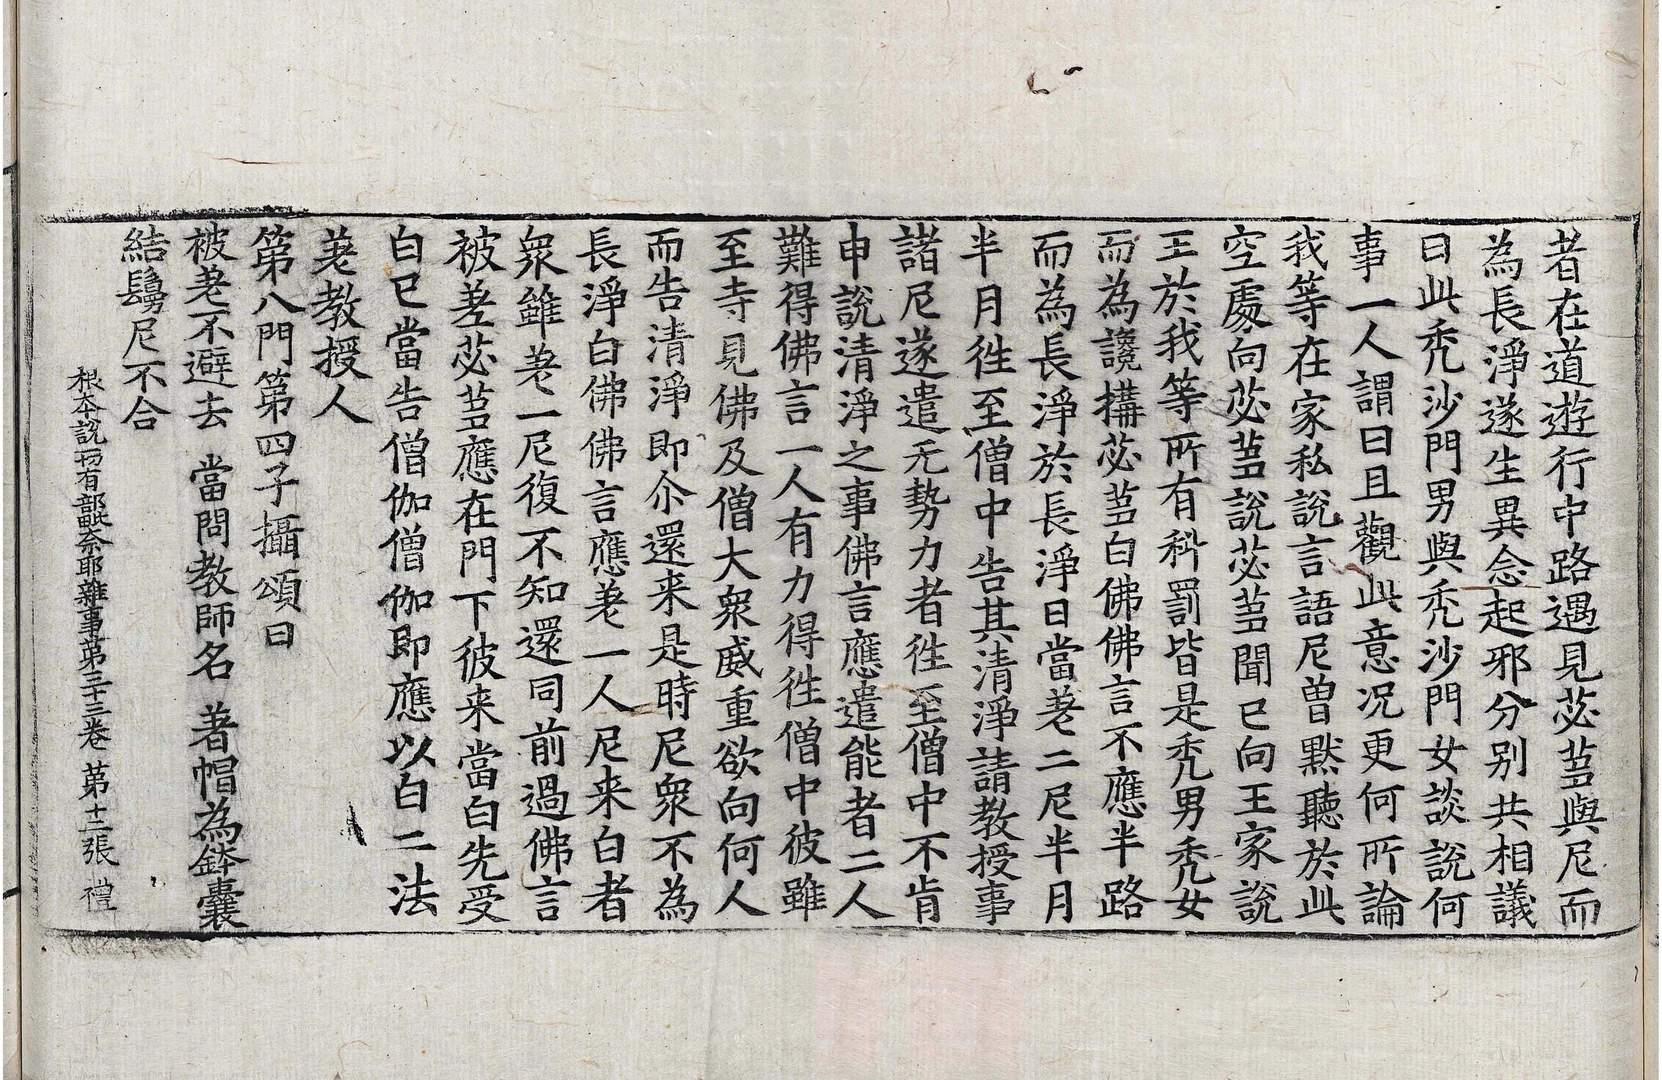 者在道遊行中路遇見苾芻與尼而
為長淨遂生異念起邪分別共相議
曰此禿沙門男與禿沙門女談說何
事一人謂曰且觀此意況更何所論
我等在家私說言語尼曾默聽於此
空處向苾芻說苾芻聞已向王家說
王於我等所有科罰皆是禿男禿女
而為讒搆苾芻白佛佛言不應半路
而為長淨於長淨日當差二尼半月
半月往至僧中告其清淨請教授事
諸尼遂遣无勢力者往至僧中不肯
申說清淨之事佛言應遣能者二人
難得佛言一人有力得往僧中彼雖
至寺見佛及僧大眾威重欲向何人
而告清淨即尒還来是時尼眾不為
長淨白佛佛言應差一人尼来白者
眾雖差一尼復不知還同前過佛言
被差苾芻應在門下彼来當白先受
白已當告僧伽僧伽即應以白二法
差教授人
第八門第四子攝頌曰
被差不避去 當問教師名 著帽為鉢囊
結鬘尼不合
根本說一切有部毗奈耶雜事第三十三卷 第十二張 禮